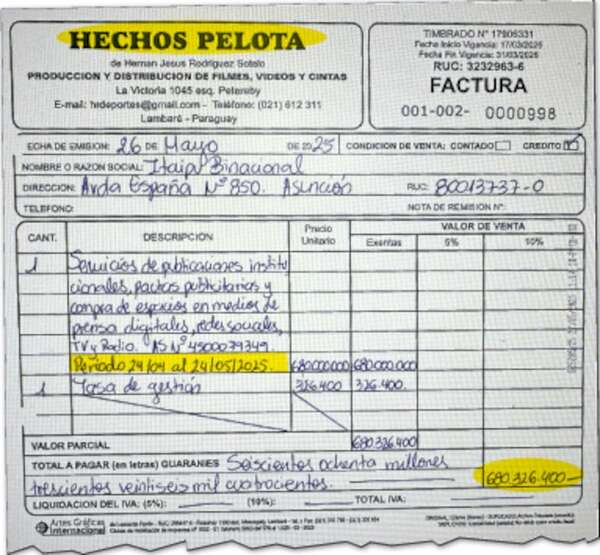 HECHOS PELOTA
de Hernan Jesus Rodriguez Sotelo
PRODUCCION Y DISTRIBUCION DE FILMES, VIDEOS Y CINTAS
La Victoria 1045 esq. Petereby
E-mail: hrdeportes@gmail.com - Teléfono: (021) 612 311
Lambaré - Paraguay
TIMBRADO N° 17906331
Fecha Inicio Vigencia: 17/03/2025
Fecha Fin Vigencia: 31/03/2026
RUC: 3232963-6
FACTURA
001-002- 0000998
ECHA DE EMISION: 26 DE Mayo DE 2025 CONDICION DE VENTA: CONTADO CREDITO
NOMBRE O RAZON SOCIAL: Itaipu Binacional
DIRECCION: Avda España N° 850. Asunción RUC: 80013737-0
TELEFONO: NOTA DE REMISION N°:
CANT. DESCRIPCION Precio Unitario VALOR DE VENTA
Exentas 5% 10%
1 Servicios de publicaciones institu
cionales, pautas publicitarias y
compra de espacios en medios de
prensa digitales, redes sociales,
TV y Radio. AS N° 4500079349.
Período 24/04 al 24/05/2025. 680.000.000 680.000.000
1 Tasa de gestión 326.400 326.400.
VALOR PARCIAL 680.326.400
TOTAL A PAGAR (en letras) GUARANIES Seiscientos ochenta millones
trescientos veintiseis mil cuatrocientos. 680.326.400
LIQUIDACION DEL IVA: (5%): (10%): TOTAL IVA:
Artes Gráficas
Internacional